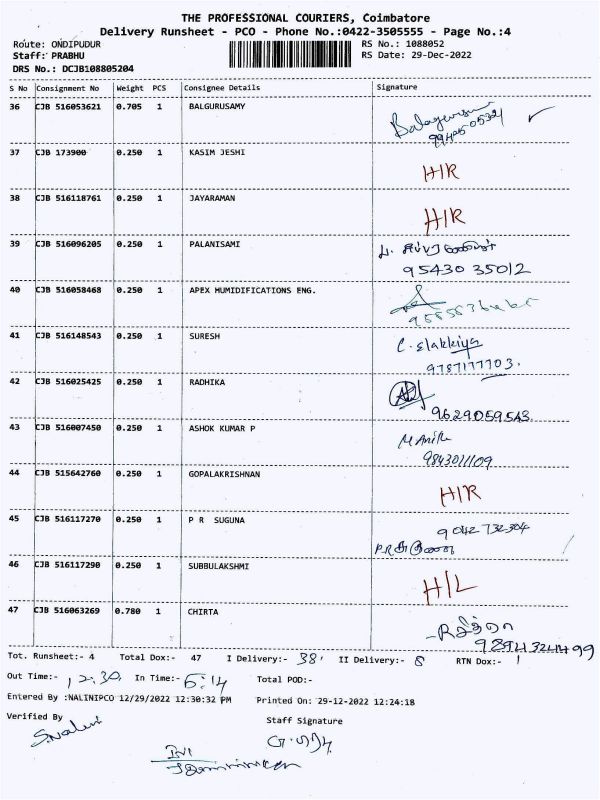 THE PROFESSIONAL COURIERS, Coimbatore
Delivery Runsheet - PCO - Phone No.:0422-3505555 - Page No.:4
Route: ONDIPUDUR RS No.: 1088052
Staff: PRABHU RS Date: 29-Dec-2022
DRS No.: DCJB108805204
S No Consignment No Weight PCS Consignee Details Signature
36 CJB 516053621 0.705 1 BALGURUSAMY
37 CJB 173900 0.250 1 KASIM JESHI H/R
38 CJB 516118761 0.250 1 JAYARAMAN H/R
39 CJB 516096205 0.250 1 PALANISAMI
95430 35012
40 CJB 516058468 0.250 1 APEX HUMIDIFICATIONS ENG.
41 CJB 516148543 0.250 1 SURESH C. Elakkiya
9787177703.
42 CJB 516025425 0.250 1 RADHIKA
9629059543
43 CJB 516007450 0.250 1 ASHOK KUMAR P
9843011109
44 CJB 515642760 0.250 1 GOPALAKRISHNAN H/R
45 CJB 516117270 0.250 1 P R SUGUNA 9042 732304
46 CJB 516117290 0.250 1 SUBBULAKSHMI H/L
47 CJB 516063269 0.780 1 CHIRTA
Tot. Runsheet:- 4 Total Dox:- 47 I Delivery:- 38 II Delivery:- 8 RTN Dox:- 1
Out Time:- 12.30 In Time:- 6:14 Total POD:-
Entered By :NALINIPCO 12/29/2022 12:30:32 PM Printed On: 29-12-2022 12:24:18
Verified By Staff Signature
S.Nalini